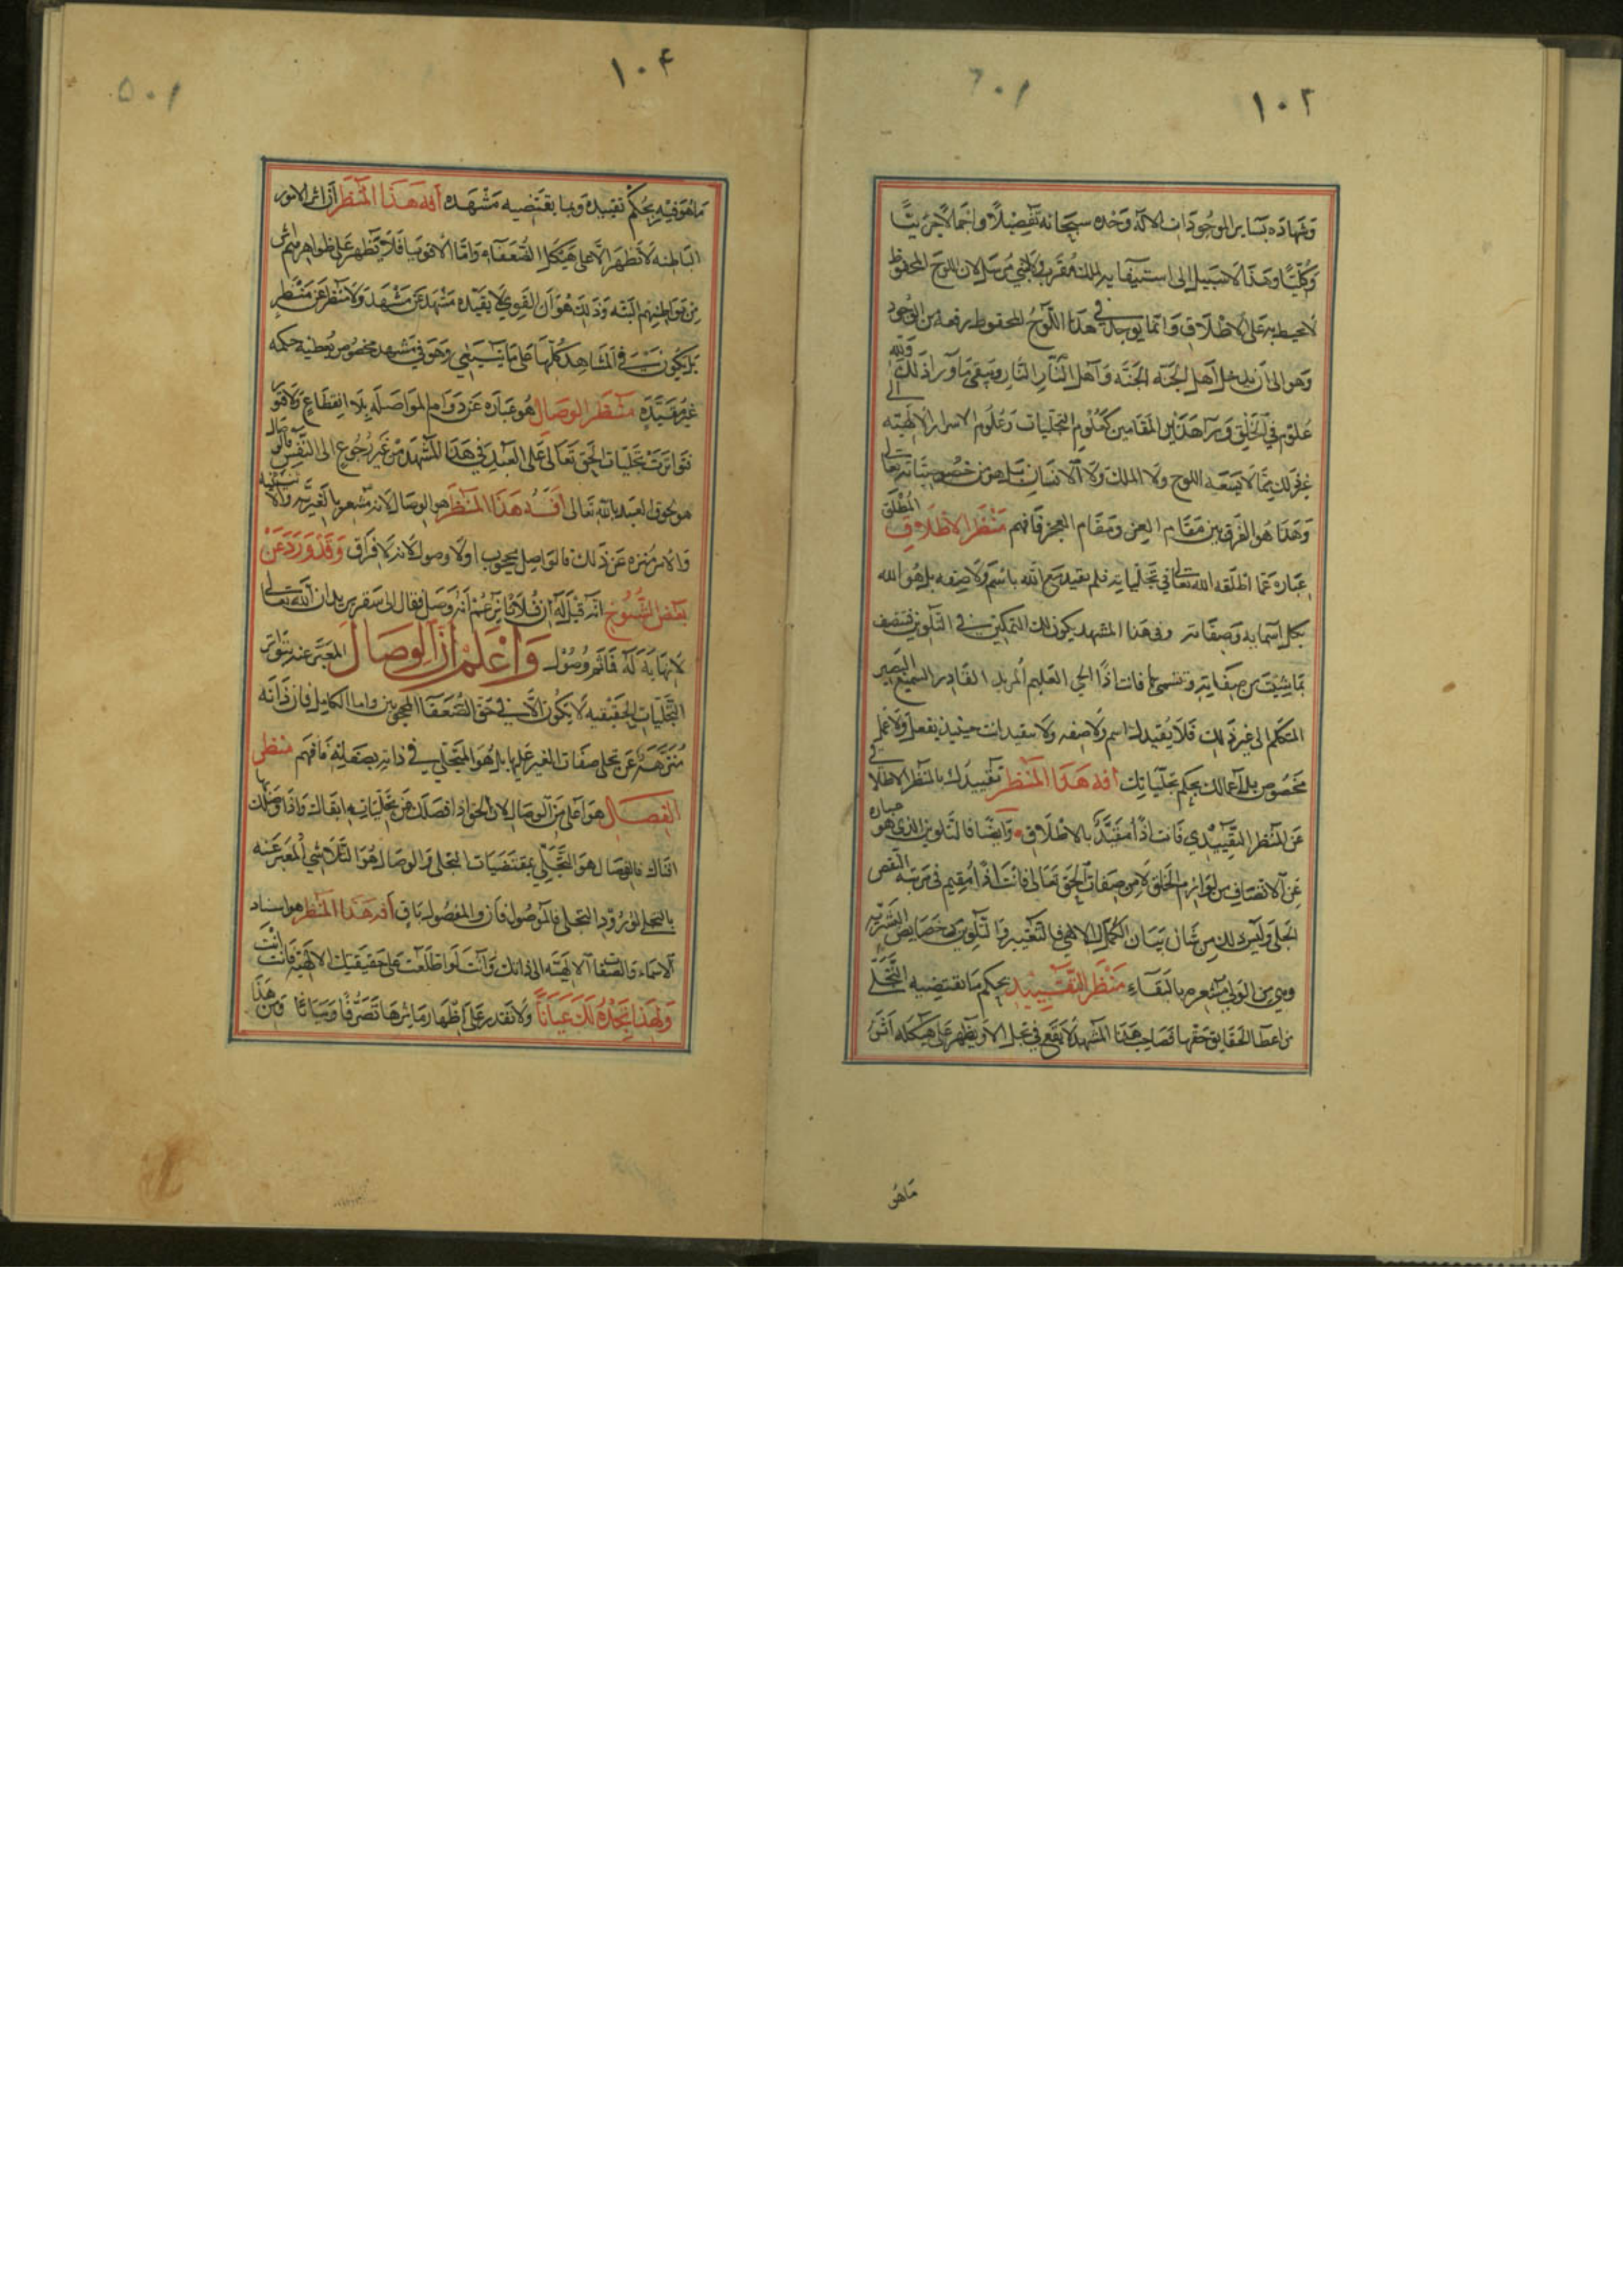 ١٠٣
وشهادة بساير الموجودات الا له وحده سبحانه تفصيلا واجمالا جزئيا
وكليا وهذا لا سبيل الى استيفايه لملك مقرب ولا نبي مرسل لان اللوح المحفوظ
لا يحيط به على الاطلاق وانما يوجد في هذا اللوح المحفوظ من الوجود
وهو الى ان يدخل اهل الجنة الجنة واهل النار النار ويبقى ما وراء ذلك ولله
علوم في الخلق وراء هذين المقامين كعلوم التجليات وعلوم الاسرار الالهيه
غير ذلك مما لا يسعه اللوح ولا الملك ولا الانسان بل هو من خصوصياته تعالى
وهذا هو الفرق بين مقام العز ومقام العجز فافهم منظر الاطلاق المطلق
عباره عما اطلقه الله تعالى في تجلياته فلم يقيد مع الله باسم ولا صفه بل هو الله
بكل اسمايه وصفاته وفي هذا المشهد يكون لك التمكين في التلوين فتتصف
بما شئت من صفاته وتتسمى بها فانت اذا الحي العليم المريد القادر السميع البصير
المتكلم الى غير ذلك فلا يقيدك اسم ولا صفه ولا تتقيد انت حينئذ بفعل ولا عمل
مخصوص بل اعمالك بحكم تجلياتك افة هذا المنظر تقييدك بالمنظر الاطلاقي
عن المنظر التقييدي فانت اذا مقيد بالاطلاق وايضا فالتلوين الذي هو عباره
عن الاتصاف من لوازم الخلق لا من صفات الحق تعالى فانت اذا مقيم في مرتبة النقص
الجلي وليس لك من شان الكمال الالهي فالتغيير والتلوين من خصايص البشريه
منظر التقييد بحكم ما تقتضيه التجلي
من اعطا الحقايق حقها فصاحب هذا المشهد لا يقع في تجل الا ويظهر على هيكله اثر
ماهو
١٠٤
ما هو فيه بحكم تقييده وبما يقتضيه مشهده افة هذا المنظر ان اثر الامور
الباطنه لا تظهر الا على هيكل الضعفاء واما الاقويا فلا يظهر على ظواهرهم اثر
من بواطنهم البته وذلك هو ان القوي لا يقيده مشهد عن مشهد ولا منظر عن منظر
بل يكون في المشاهد كلها على ما ينبغي وهو في مشهد مخصوص يعطيه حكمه
غير مقيده منظر الوصال هو عباره عن دوام المواصله بلا انقطاع ولا
تواترت تجليات الحق تعالى على العبد في هذا المشهد من غير رجوع الى النفس فالوصال
هو لحوق العبد بالله تعالى افة هذا المنظر هو الوصال لانه مشعر بالغيريه والا
والامر منزه عن ذلك فالواصل محجوب اولا وصول لانه لا فراق وقد ورد عن
بعض الشيوخ انه قيل له ان فلانا يزعم انه وصل فقال الى سقر يريد ان الله تعالى
لا نهاية له فما ثم وصول واعلم ان الوصال المعبر عنه بتواتر
التجليات الحقيقيه لا يكون الا في حق الضعفا المحجوبين واما الكامل فان ذاته
منزهة عن تجلي صفات الغير عليها بل هو المتجلي في ذاته بصفاته فافهم منظر
الفصال هو اعلى من الوصال لان الحق اذا فصلك عن تجلياته ابقاك واذا وصلك بها
افناك فالفصال هو التجلي بمقتضيات التجلي والوصال هو التلاشي المعبر عنه
بالتحلي لورود التجلي فالموصول فان والمفصول باق افة هذا المنظر هو اسناد
الاسماء والصفات الالهيه الى ذاتك وانت لو اطلعت على حقيقتك الالهيه فانت انت
ولهذا تجده لك عيانا ولا تقدر على اظهار ماثرها تصرفا وبيانا ومن هذا